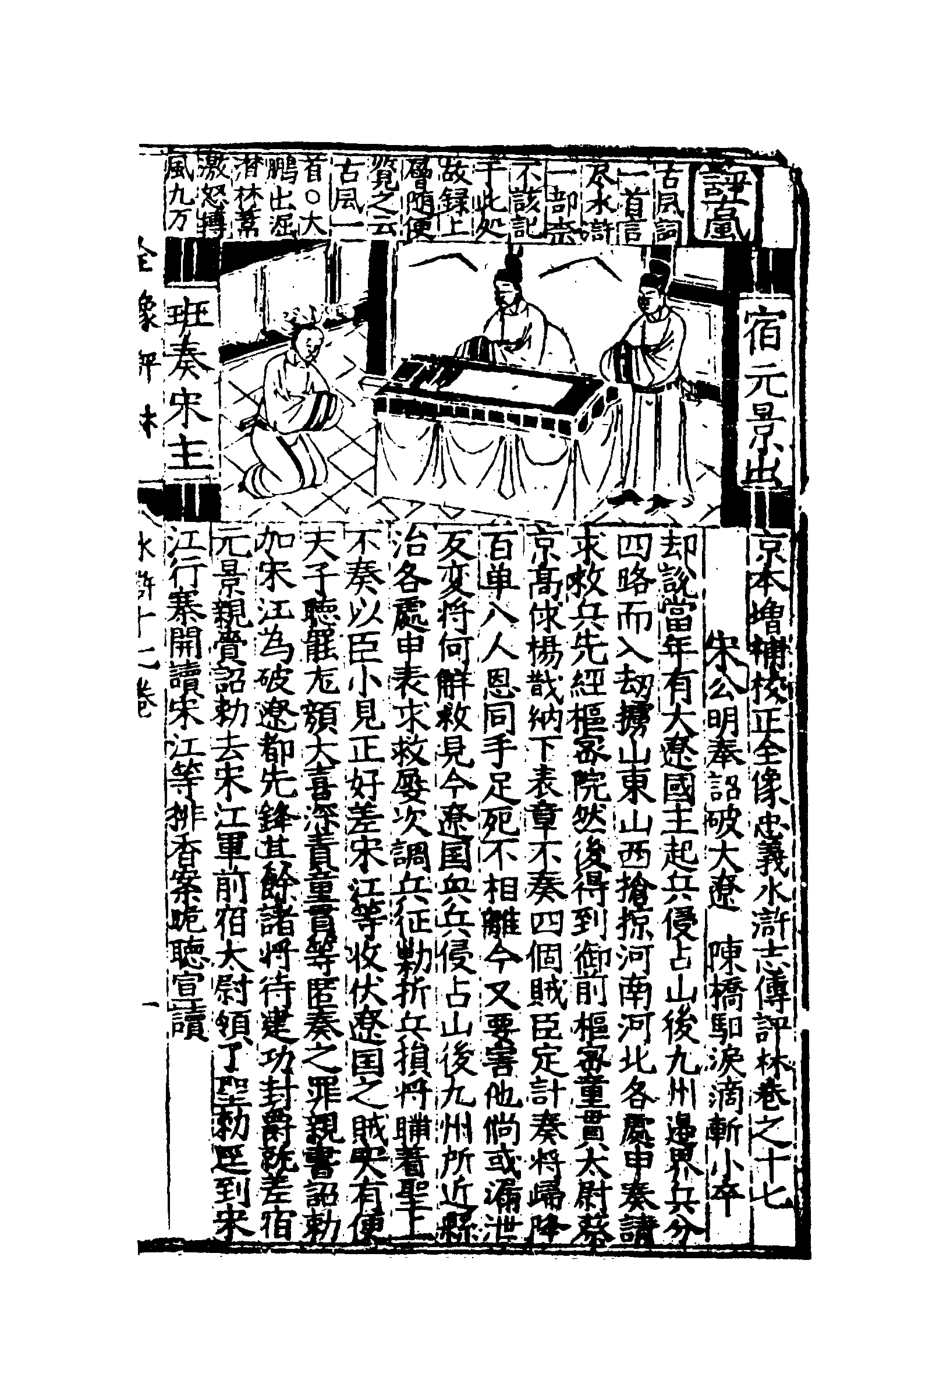 評處
古風詞
一首言
尽水滸
一部奈
不該記
于此處
故録上
層隨便
覽之云
古風一
首○大
鵬出漲
潜林蒿
激怒搏
風九万
宿元景出
班奏宋主
京本增補校正全像忠義水滸志傳評林卷之十七
宋公明奉詔破大遼 陳橋馹淚滴斬小卒
却說當年有大遼國王起兵侵占山後九州邊界兵分
四路而入刼擄山東山西搶掠河南河北各處申奏請
求救兵先經樞密院然後得到御前樞密童貫太尉蔡
京高俅楊戩納下表章不奏四個賊臣定計奏將歸降
百単八人恩同手足死不相離今又要害他倘或漏泄
反変将何解救見今遼国兵侵占山後九州所近縣
治各處申表求救屡次調兵征勦折兵損将瞞着聖上
不奏以臣小見正好差宋江等收伏遼国之賊実有便
天子聽罷龙顔大喜深責童貫等匿奏之罪親書詔勅
加宋江為破遼都先鋒其餘諸将待建功封爵就差宿
元景親賫詔勅去宋江軍前宿太尉領了聖勅逕到宋
江行寨開讀宋江等排香案跪聴宣讀
全像評林
水滸十七卷
一